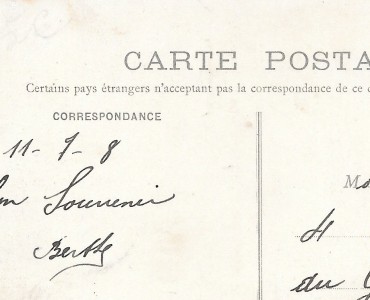 CARTE POSTA
Certains pays étrangers n'acceptant pas la correspondance de ce c
CORRESPONDANCE
11-9-8
Souvenir
Berthe
M
du